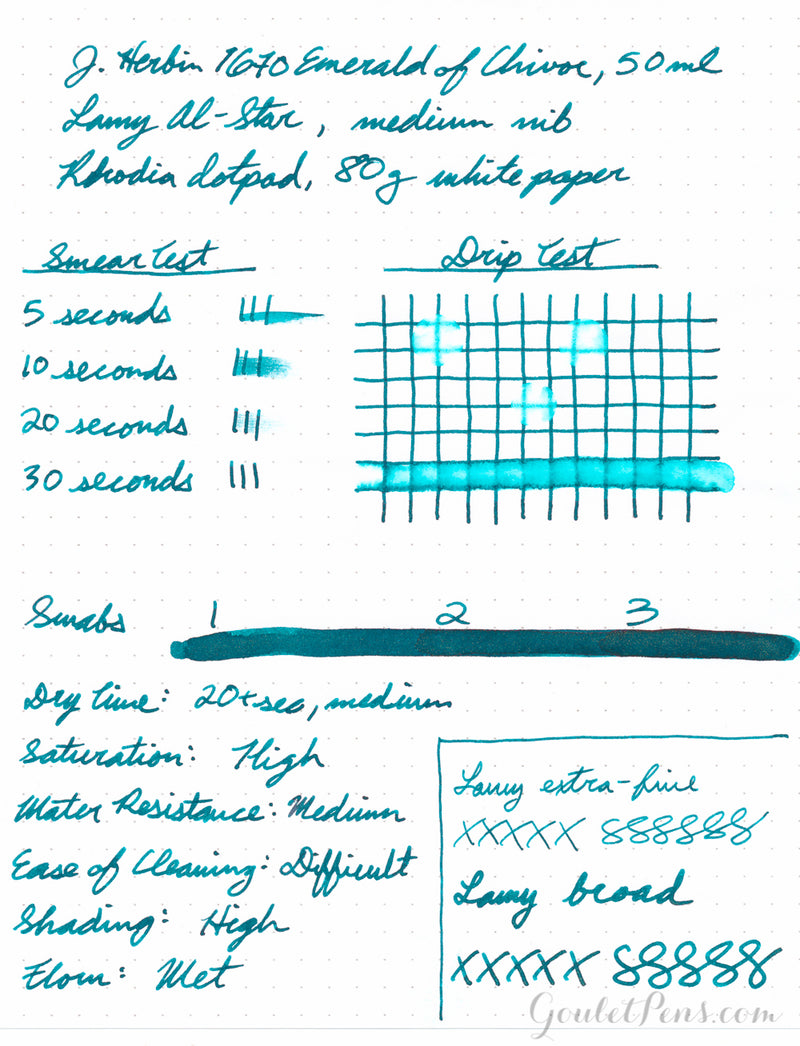 J. Herbin 1670 Emerald of Chivor, 50ml
Lamy Al-Star, medium nib
Rhodia dotpad, 80g white paper
Smear Test
5 seconds
10 seconds
20 seconds
30 seconds
Drip Test
Swabs 1 2 3
Dry time: 20+ sec, medium
Saturation: High
Water Resistance: Medium
Ease of Cleaning: Difficult
Shading: High
Flow: Wet
Lamy extra-fine
xxxxx 888888
Lamy broad
XXXXX 88888
GouletPens.com